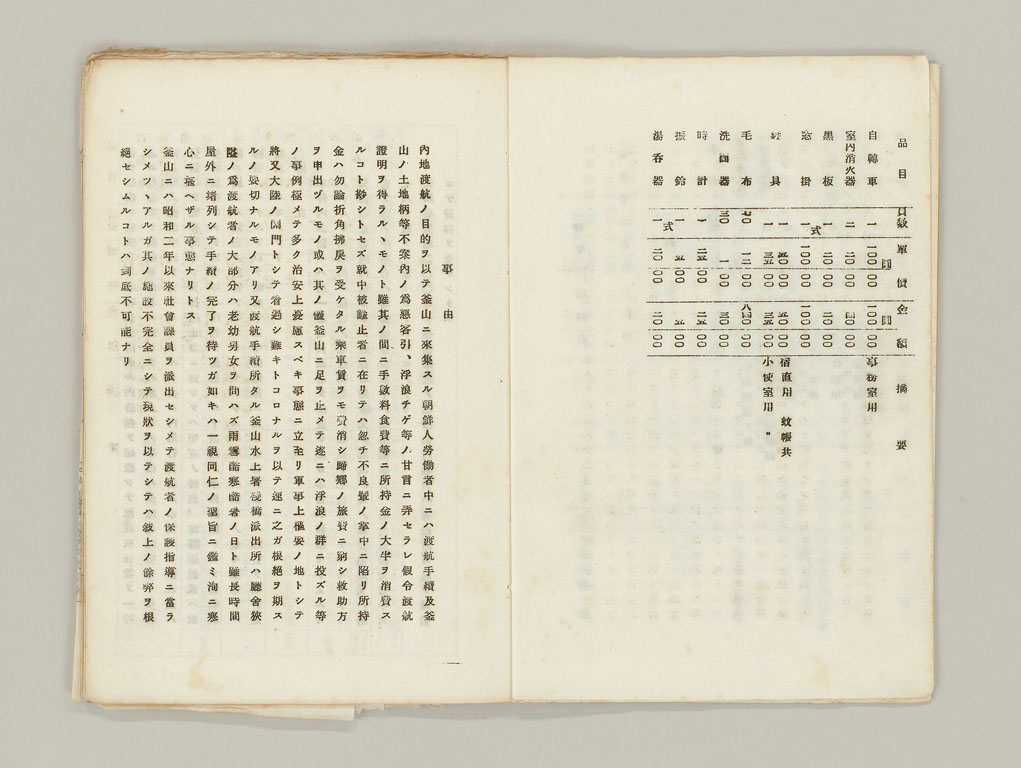 品目 員數 單價 金額 摘要
圓 圓
自轉車 一 一〇〇 〇〇 一〇〇 〇〇 事務室用
室內消火器 二 二〇 〇〇 四〇 〇〇
黑板 一 二〇 〇〇 二〇 〇〇
窓掛 一式 一〇〇 〇〇 一〇〇 〇〇
寢具 一 五〇 〇〇 五〇 〇〇 宿直用 蚊帳共
一 三五 〇〇 三五 〇〇 小使室用 〃
毛布 七〇 一二 〇〇 八四〇 〇〇
洗面器 三〇 一 〇〇 三〇 〇〇
時計 一 二五 〇〇 二五 〇〇
振鈴 一 五 〇〇 五 〇〇
湯呑器 一式 二〇 〇〇 二〇 〇〇
事由
內地渡航ノ目的ヲ以テ釜山ニ來集スル朝鮮人勞働者中ニハ渡航手續及釜
山ノ土地柄等不案內ノ爲惡客引、浮浪チゲ等ノ甘言ニ弄セラレ假令渡航
證明ヲ得ラルヽモノト雖其ノ間ニ手數料食費等ニ所持金ノ大半ヲ消費ス
ルコト尠シトセズ就中被諭止者ニ在リテハ忽チ不良輩ノ掌中ニ陷リ所持
金ハ勿論折角拂戾ヲ受ケタル乘車賃ヲモ費消シ歸鄕ノ旅費ニ窮シ救助方
ヲ申出ヅルモノ或ハ其ノ儘釜山ニ足ヲ止メテ遂ニハ浮浪ノ群ニ投ズル等
ノ事例極メテ多ク治安上憂慮スベキ事態ニ立至リ軍事上樞要ノ地トシテ
將又大陸ノ關門トシテ看過シ難キトコロナルヲ以テ速ニ之ガ根絕ヲ期ス
ルノ要切ナルモノアリ又渡航手續所タル釜山水上署棧橋派出所ハ廳舍狹
隘ノ爲渡航者ノ大部分ハ老幼男女ヲ問ハズ雨雪酷寒酷暑ノ日ト雖長時間
屋外ニ堵列シテ手續ノ完了ヲ待ツガ如キハ一視同仁ノ聖旨ニ鑑ミ洵ニ寒
心ニ堪ヘザル事態ナリトス
釜山ニハ昭和二年以來社會課員ヲ派出セシメテ渡航者ノ保護指導ニ當ラ
シメツヽアルガ其ノ施設不完全ニシテ現狀ヲ以テシテハ敍上ノ餘弊ヲ根
絕セシムルコトハ到底不可能ナリ
一